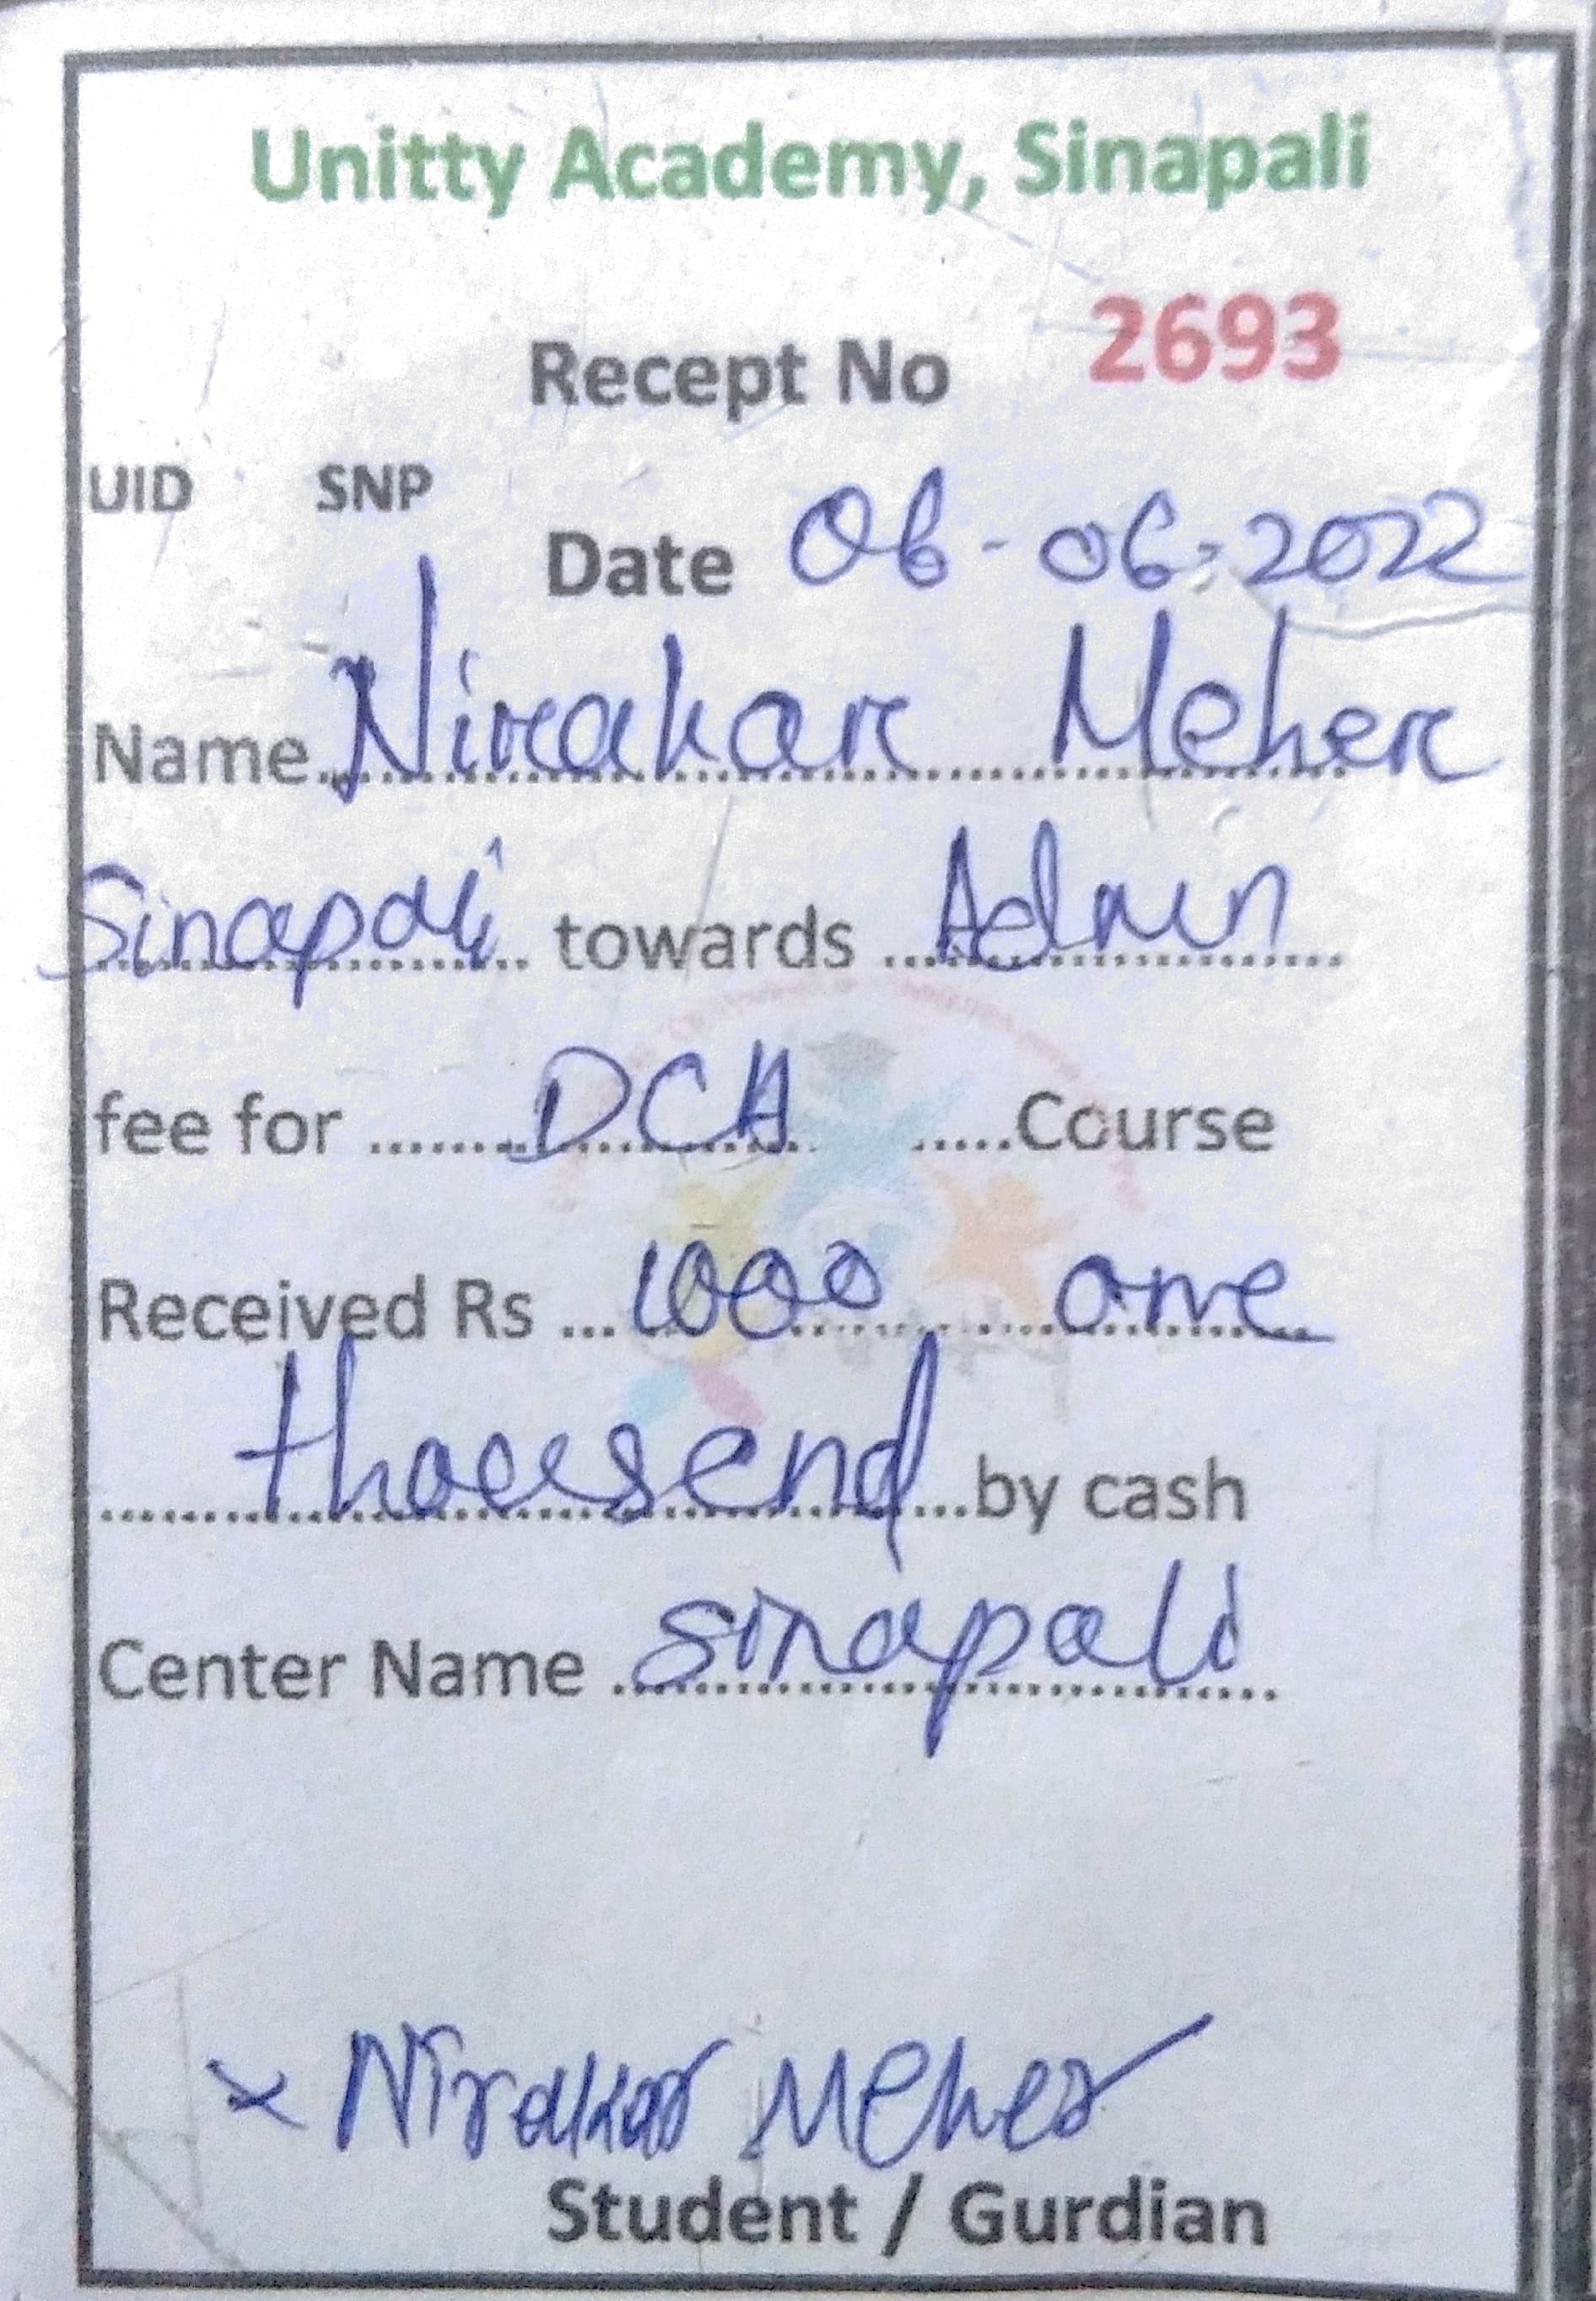 Unitty Academy, Sinapali
Recept No 2693
UID SNP
Date 06-06-2022
Name Nirakar Meher
Sinapali towards Admn
fee for DCA Course
Received Rs 1000 one
thousend by cash
Center Name Sinapali
x Nirakar Meher
Student / Gurdian